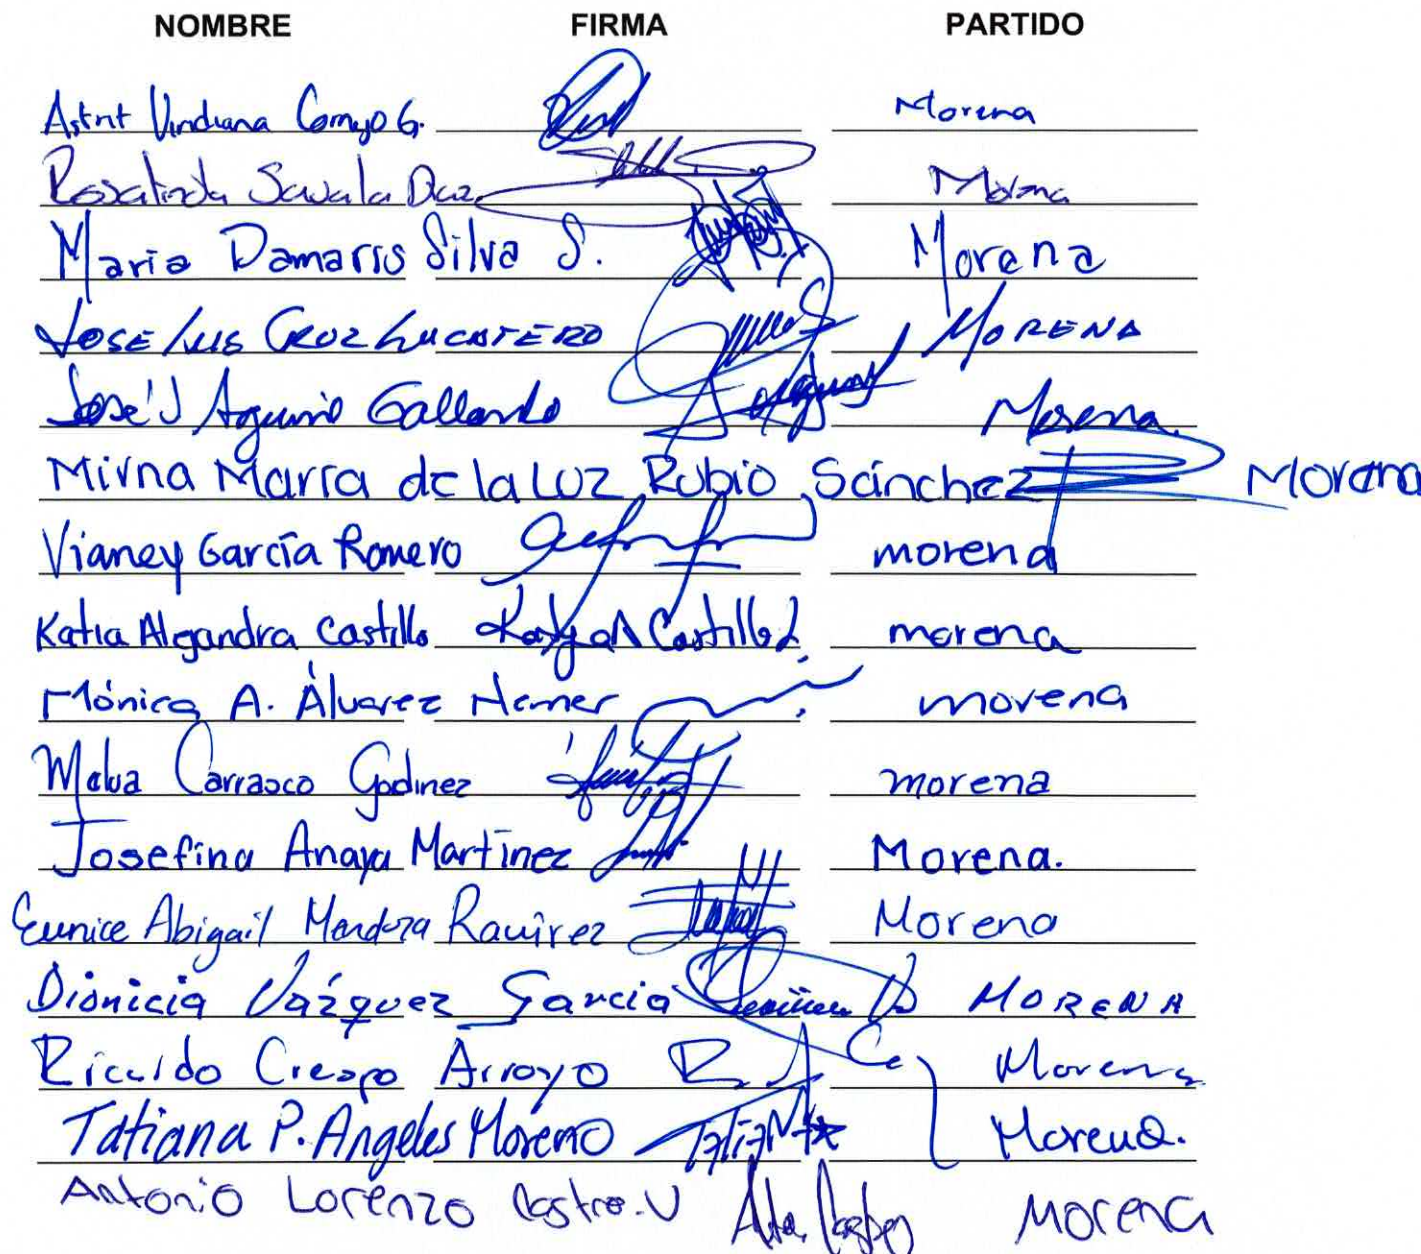 NOMBRE FIRMA PARTIDO
Viridiana G. Morena
Rosalinda Savala Morena
Maria Damaris Silva S. Morena
JOSE LUIS CRUZ LUCATERO MORENA
José J Gallardo Morena.
Mirna María de la Luz Rubio Sánchez Morena
Vianey García Romero morena
Katia Alejandra Castillo Katya A Castillo L. morena
Mónica A. Álvarez Nemer morena
Melva Carrasco Godinez morena
Josefina Anaya Martínez Morena.
Eunice Abigail Mendoza Ramírez Morena
Dionicia Vázquez García MORENA
Ricardo Crespo Arroyo Morena
Tatiana P. Angeles Moreno TATIANA Morena.
Antonio Lorenzo Castro. V Morena